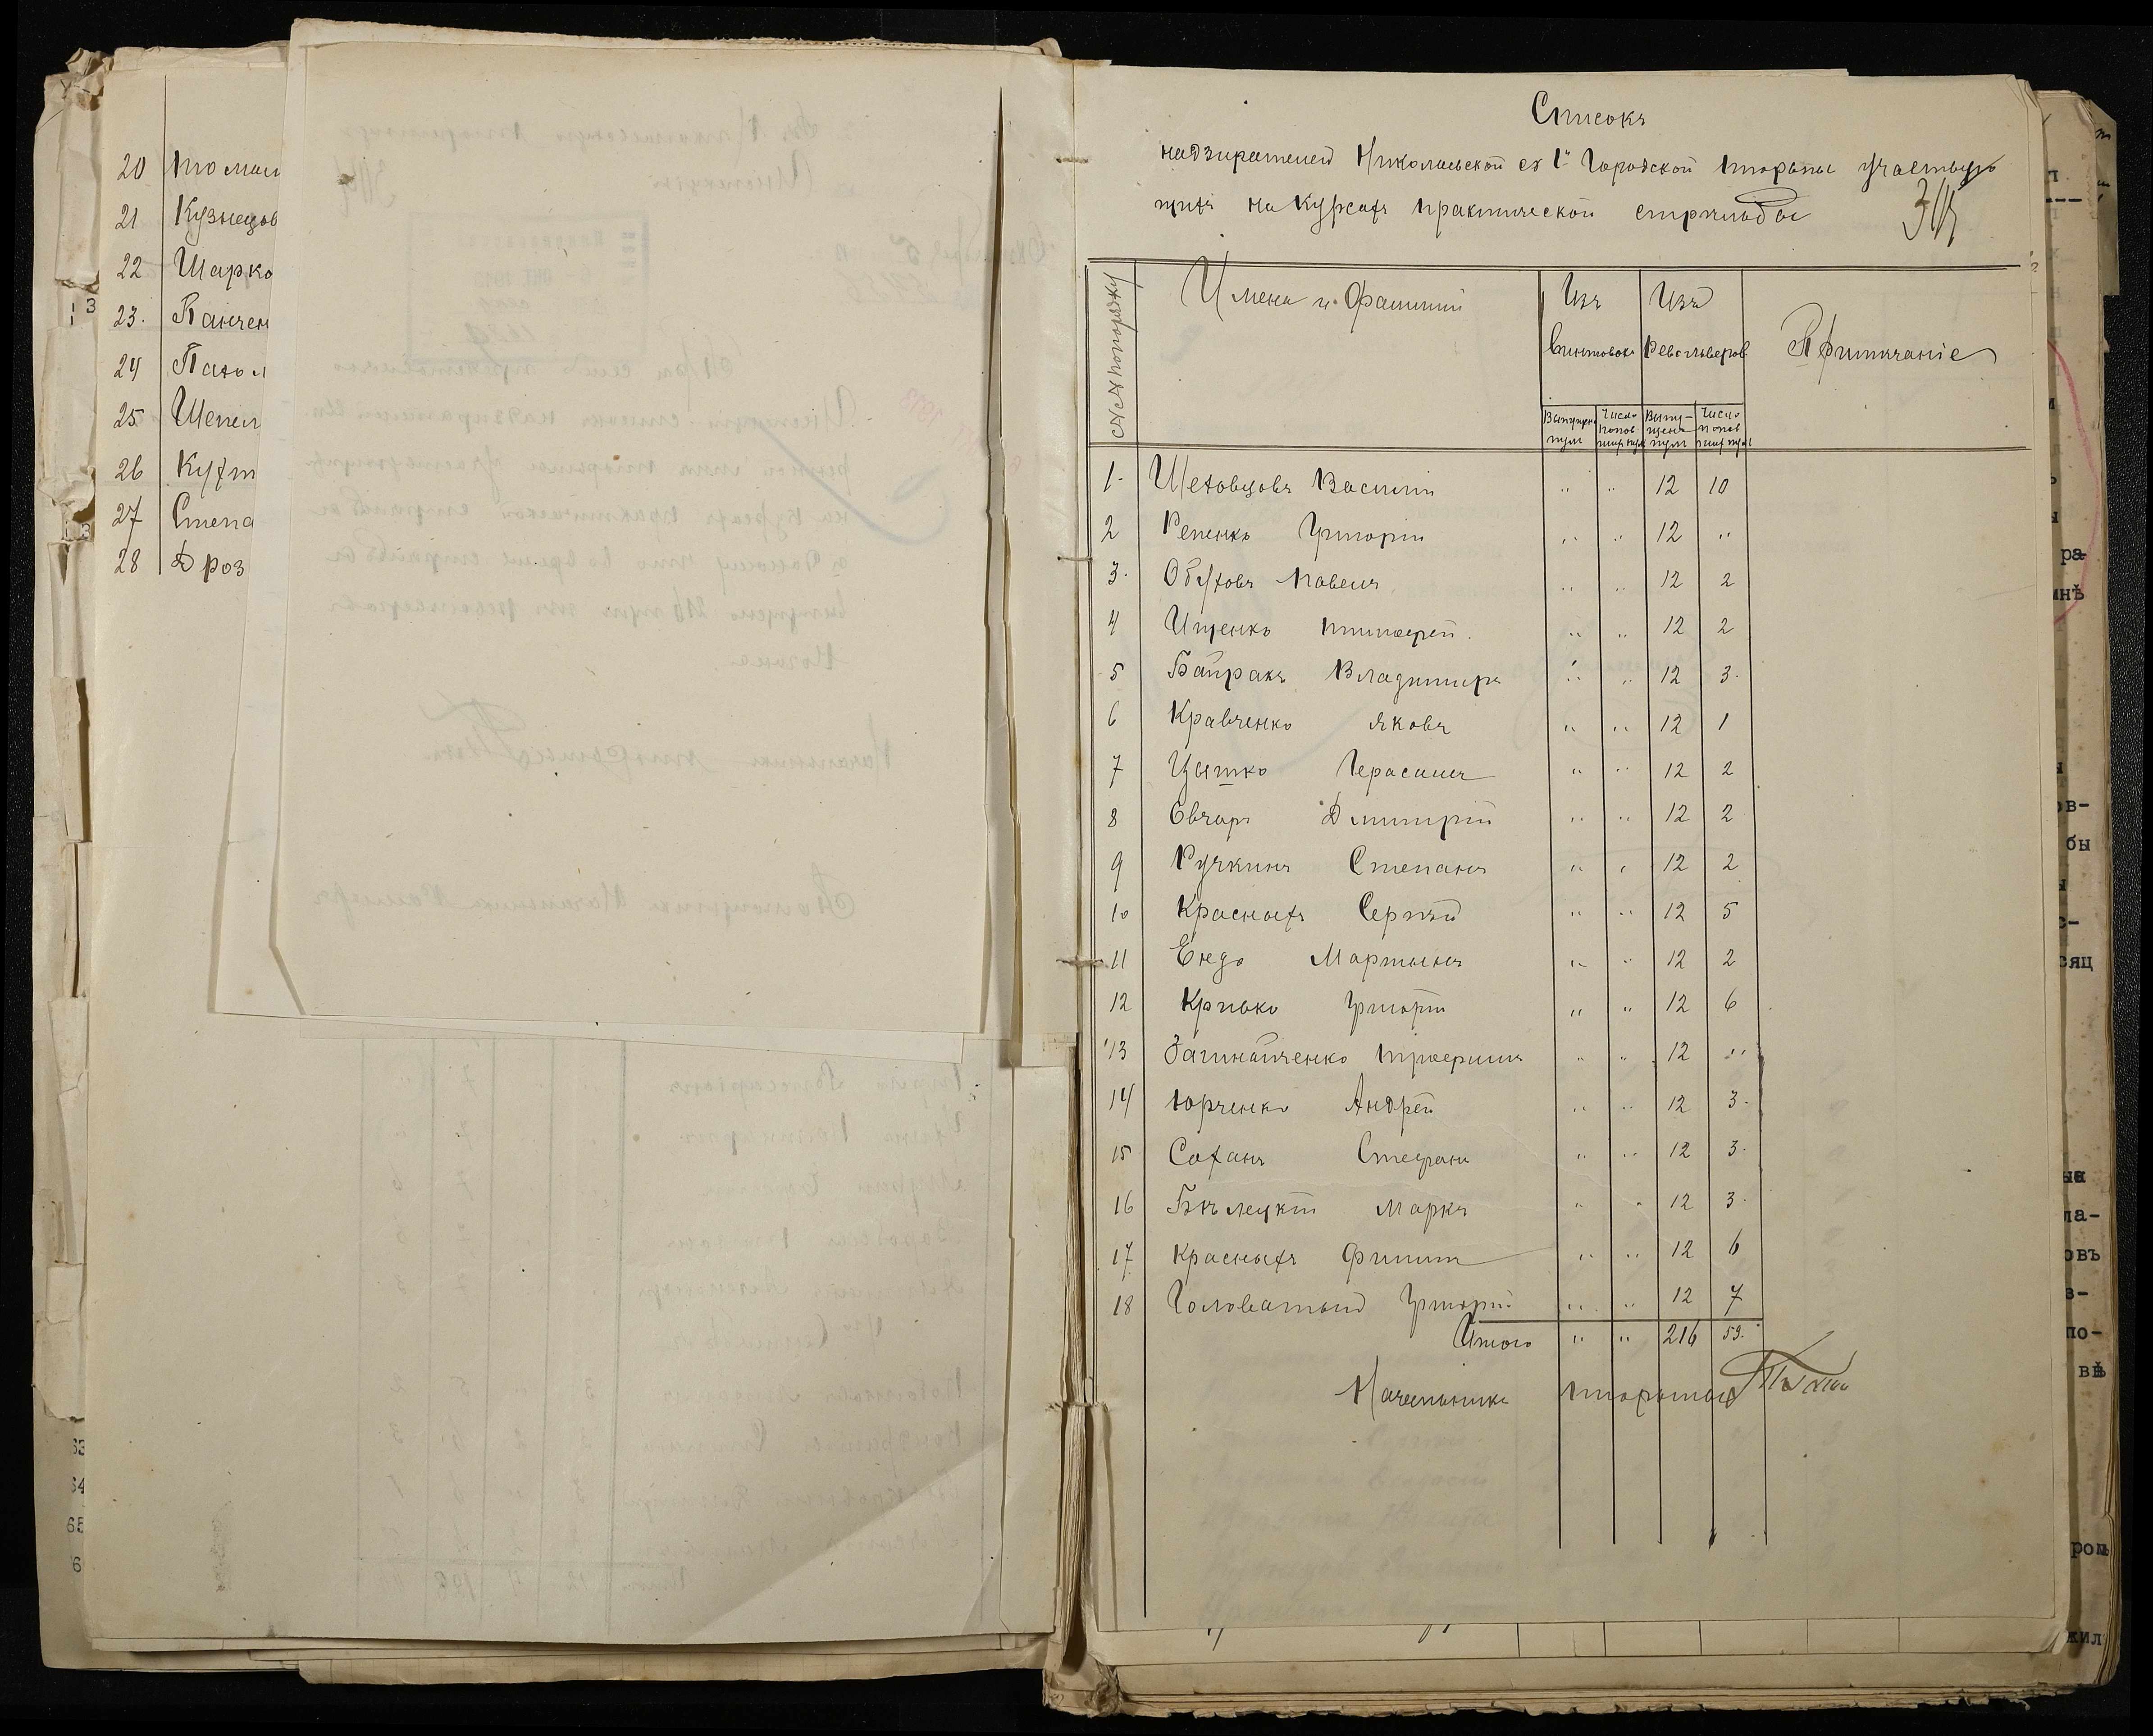 20 Томаш
21 Кузнецов
22 Шарко
23. Панчен
24 Пахол
25 Шепел
26 Кухт
27 Степа
28 Дроз
Списокъ
надзирателей Николаевской 1й Городской тюрьмы участвую
щихъ на Курсахъ практической стрельбы
№№ по порядку
Имена и Фамилии
Изъ винтовокъ
Изъ Револьверовъ
Примѣчаніе
Выпущено пуль
Число попавших пуль
Выпущено пуль
Число попавших пуль
1. Шеховцовъ Василій " " 12 10
2 Репенко Григорій " " 12 "
3. Обуховъ Павелъ " " 12 2
4 Ищенко Тимофей " " 12 2
5 Байракъ Владимиръ " " 12 3.
6 Кравченко Яковъ " " 12 1
7 Цышко Герасимъ " " 12 2
8 Овчаръ Дмитрій " " 12 2
9 Ручкинъ Степанъ " " 12 2
10 Красныхъ Сергѣй " " 12 5
11 Ендо Мартынъ " " 12 2
12 Крывко Григорій " " 12 6
13 Загинайченко Трофимъ " " 12 "
14 Юрченко Андрей " " 12 3.
15 Саханъ Стефанъ " " 12 3.
16 Бѣлецкій Маркъ " " 12 3.
17 Красныхъ Филиппъ " " 12 6
18 Головатый Григорій " " 12 7
Итого " " 216 59.
Начальникъ тюрьмы